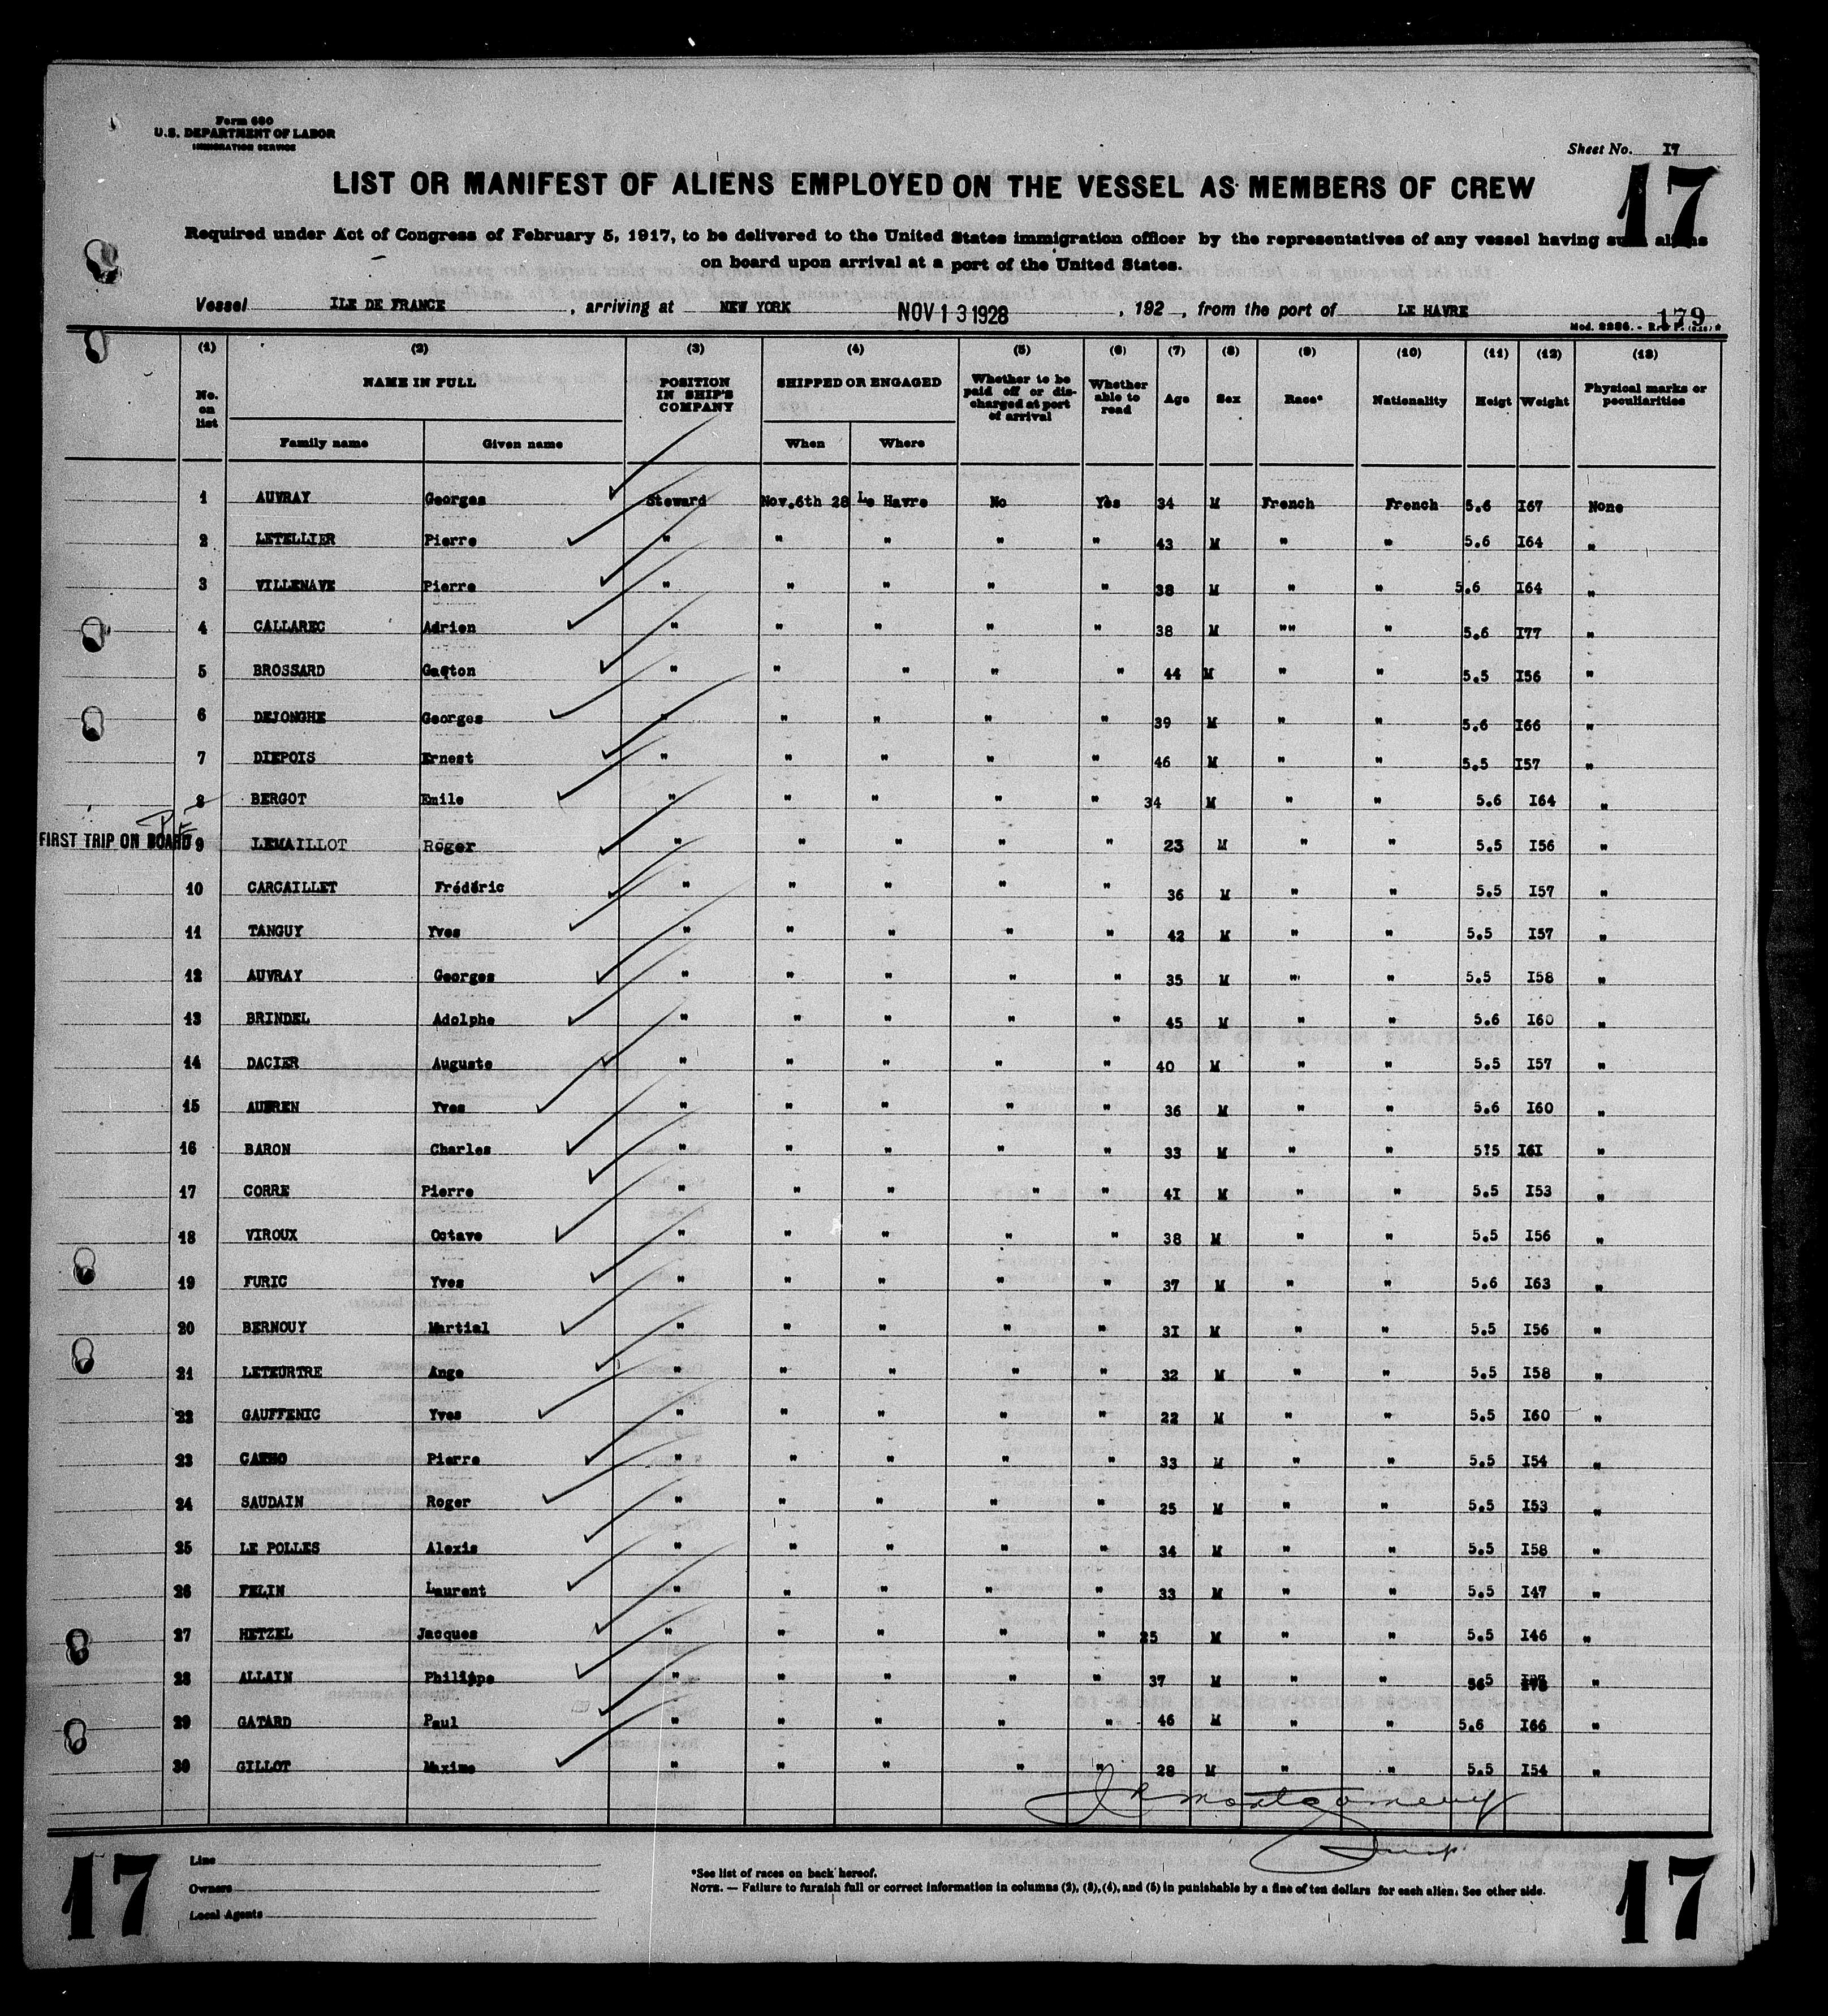 Form 680
U.S. DEPARTMENT OF LABOR
IMMIGRATION SERVICE
Sheet No. I7
17
LIST OR MANIFEST OF ALIENS EMPLOYED ON THE VESSEL AS MEMBERS OF CREW
Required under Act of Congress of February 5, 1917, to be delivered to the United States immigration officer by the representatives of any vessel having such aliens
on board upon arrival at a port of the United States.
Vessel ILE DE FRANCE, arriving at NEW YORK NOV 13 1928, 192 , from the port of LE HAVRE
179
(1) (2) (3) (4) (5) (6) (7) (8) (9) (10) (11) (12) (13)
No. on list NAME IN FULL POSITION IN SHIP'S COMPANY SHIPPED OR ENGAGED Whether to be paid off or discharged at port of arrival Whether able to read Age Sex Race* Nationality Heigt Weight Physical marks or peculiarities
Family name Given name When Where
1 AUVRAY Georges Steward Nov.6th 28 Le Havre No Yes 34 M French French 5.6 I67 None
2 LETELLIER Pierre " " " " " 43 M " " 5.6 I64 "
3 VILLENAVE Pierre " " " " " 38 M " " 5.6 I64 "
4 CALLAREC Adrien " " " " " 38 M "" " 5.6 I77 "
5 BROSSARD Gaston " " " " " 44 M " " 5.5 I56 "
6 DEJONGHE Georges " " " " " 39 M " " 5.6 I66 "
7 DIEPOIS Ernest " " " " " 46 M " " 5.5 I57 "
8 BERGOT Emile " " " " " 34 M " " 5.6 I64 "
FIRST TRIP ON BOARD 9 LEMAILLOT Roger " " " " " 23 M " " 5.5 I56 "
10 CARCAILLET Frédéric " " " " " 36 M " " 5.5 I57 "
11 TANGUY Yves " " " " " 42 M " " 5.5 I57 "
12 AUVRAY Georges " " " " " 35 M " " 5.5 I58 "
13 BRINDEL Adolphe " " " " " 45 M " " 5.6 I60 "
14 DACIER Auguste " " " " " 40 M " " 5.5 I57 "
15 AUFREN Yves " " " " " 36 M " " 5.6 I60 "
16 BARON Charles " " " " " 33 M " " 5?5 I6I "
17 CORRE Pierre " " " " " 4I M " " 5.5 I53 "
18 VIROUX Octave " " " " " 38 M " " 5.5 I56 "
19 FURIC Yves " " " " " 37 M " " 5.6 I63 "
20 BERNOUY Martial " " " " " 3I M " " 5.5 I56 "
21 LETEURTRE Ange " " " " " 32 M " " 5.5 I58 "
22 GAUFFENIC Yves " " " " " 22 M " " 5.5 I60 "
23 Pierre " " " " " 33 M " " 5.5 I54 "
24 SAUDAIN Roger " " " " " 25 M " " 5.5 I53 "
25 LE POLLES Alexis " " " " " 34 M " " 5.5 I58 "
26 FELIN Laurent " " " " " 33 M " " 5.5 I47 "
27 HETZEL Jacques " " " " " 25 M " " 5.5 I46 "
28 ALLAIN Philippe " " " " " 37 M " " "
29 GATARD Paul " " " " " 46 M " " 5.6 I66 "
30 GILLOT Maxime " " " " " 28 M " " 5.5 I54 "
JR Montgomery
Insp.
17
Line
Owners
Local Agents
*See list of races on back hereof.
NOTE. — Failure to furnish full or correct information in columns (2), (3), (4), and (5) in punishable by a fine of ten dollars for each alien. See other side.
17